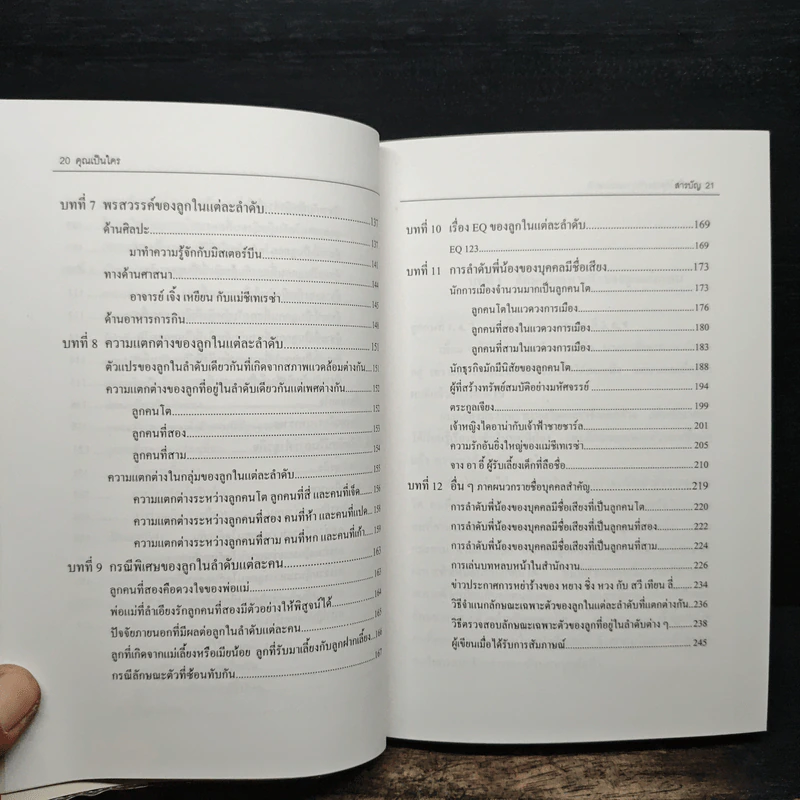 20 คุณเป็นใคร
บทที่ 7 พรสวรรค์ของลูกในแต่ละลำดับ...137
ด้านศิลปะ...
มาทำความรู้จักกับมิสเตอร์บีน...141
ทางด้านศาสนา...144
อาจารย์ เจิ้ง เหยียน กับแม่ชีเทเรซ่า...145
ด้านอาหารการกิน...148
บทที่ 8 ความแตกต่างของลูกในแต่ละลำดับ...151
ตัวแปรของลูกในลำดับเดียวกันที่เกิดจากสภาพแวดล้อมต่างกัน...151
ความแตกต่างของลูกที่อยู่ในลำดับเดียวกันแต่เพศต่างกัน...152
ลูกคนโต...152
ลูกคนที่สอง...153
ลูกคนที่สาม...154
ความแตกต่างในกลุ่มของลูกในแต่ละลำดับ...155
ความแตกต่างระหว่างลูกคนโต ลูกคนที่สี่ และคนที่เจ็ด...156
ความแตกต่างระหว่างลูกคนที่สอง คนที่ห้า และคนที่แปด...158
ความแตกต่างระหว่างลูกคนที่สาม คนที่หก และคนที่เก้า...159
บทที่ 9 กรณีพิเศษของลูกในลำดับแต่ละคน...163
ลูกคนที่สองคือดวงใจของพ่อแม่...163
พ่อแม่ที่ลำเอียงรักลูกคนที่สองมีตัวอย่างให้พิสูจน์ได้...164
ปัจจัยภายนอกที่มีผลต่อลูกในลำดับแต่ละคน...165
ลูกที่เกิดจากแม่เลี้ยงหรือเมียน้อย ลูกที่รับมาเลี้ยงกับลูกฝากเลี้ยง...166
กรณีลักษณะตัวที่ซ้อนทับกัน...167
สารบัญ 21
บทที่ 10 เรื่อง EQ ของลูกในแต่ละลำดับ...169
EQ 123...169
บทที่ 11 การลำดับพี่น้องของบุคคลมีชื่อเสียง...173
นักการเมืองจำนวนมากเป็นลูกคนโต...173
ลูกคนโตในแวดวงการเมือง...176
ลูกคนที่สองในแวดวงการเมือง...180
ลูกคนที่สามในแวดวงการเมือง...183
นักธุรกิจมักมีนิสัยของลูกคนโต...188
ผู้ที่สร้างทรัพย์สมบัติอย่างมหัศจรรย์...194
ตระกูลเจียง...199
เจ้าหญิงไดอาน่ากับเจ้าฟ้าชายชาร์ล...201
ความรักอันยิ่งใหญ่ของแม่ชีเทเรซ่า...205
จาง อา อี๋ ผู้รับเลี้ยงเด็กที่ลือชื่อ...210
บทที่ 12 อื่น ๆ ภาคผนวกรายชื่อบุคคลสำคัญ...219
การลำดับพี่น้องของบุคคลมีชื่อเสียงที่เป็นลูกคนโต...220
การลำดับพี่น้องของบุคคลมีชื่อเสียงที่เป็นลูกคนที่สอง...222
การลำดับพี่น้องของบุคคลมีชื่อเสียงที่เป็นลูกคนที่สาม...224
การเล่นบทหลบหน้าในสำนักงาน...226
ข่าวประกาศการหย่าร้างของ หยาง ซิ่ง หวง กับ สวี เทียน ลี่...234
วิธีจำแนกลักษณะเฉพาะตัวของลูกในแต่ละลำดับที่แตกต่างกัน...236
วิธีตรวจสอบลักษณะเฉพาะตัวของลูกที่อยู่ในลำดับต่าง ๆ...238
ผู้เขียนเมื่อได้รับการสัมภาษณ์...245